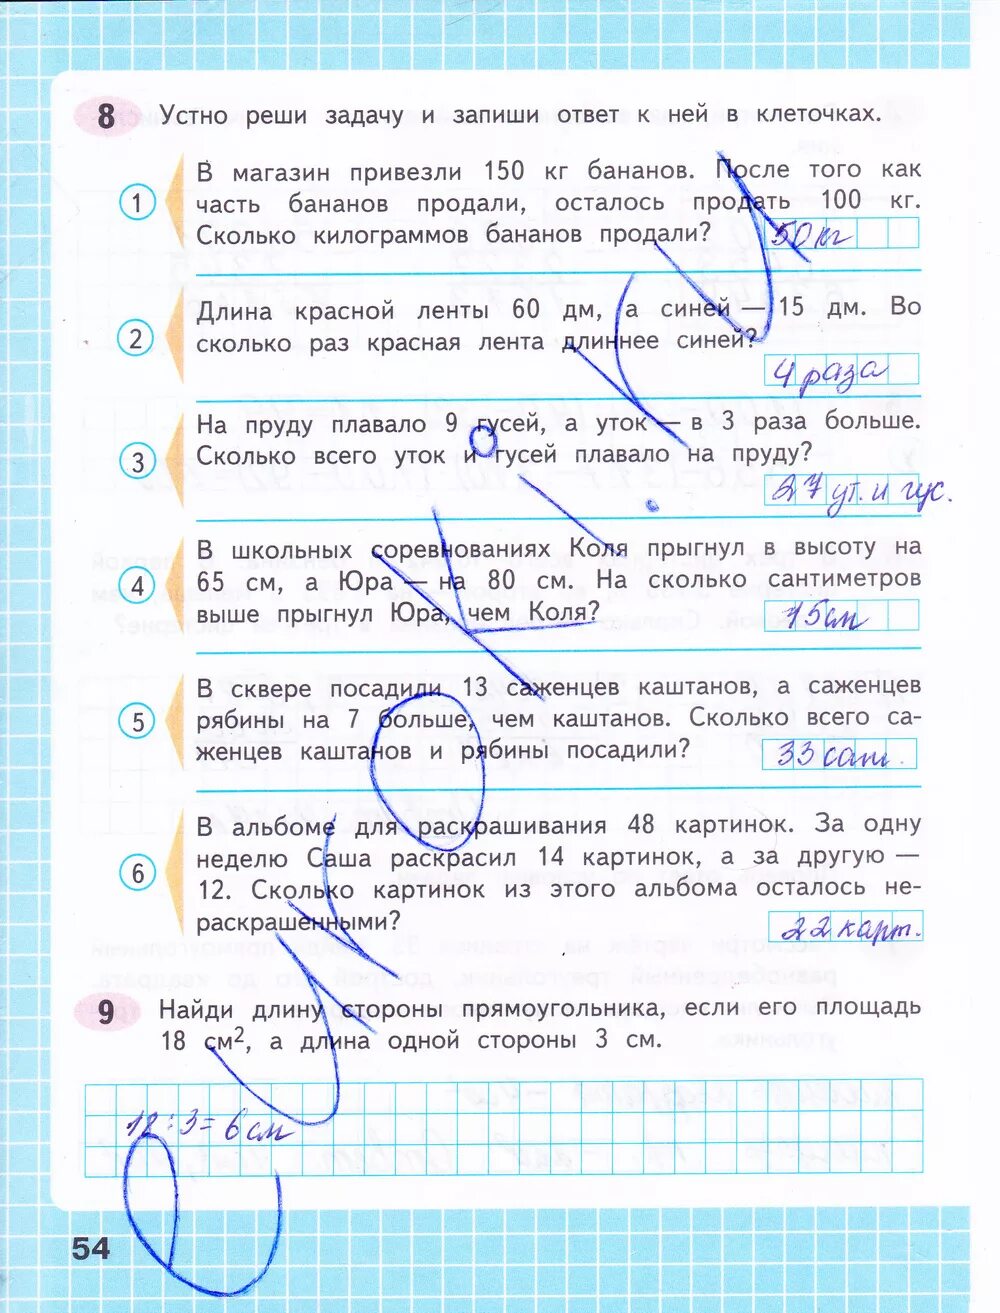 8 Устно реши задачу и запиши ответ к ней в клеточках.
1 В магазин привезли 150 кг бананов. После того как
часть бананов продали, осталось продать 100 кг.
Сколько килограммов бананов продали? 50 кг
2 Длина красной ленты 60 дм, а синей — 15 дм. Во
сколько раз красная лента длиннее синей?
4 раза
3 На пруду плавало 9 гусей, а уток — в 3 раза больше.
Сколько всего уток и гусей плавало на пруду?
27 ут. и гус.
4 В школьных соревнованиях Коля прыгнул в высоту на
65 см, а Юра — на 80 см. На сколько сантиметров
выше прыгнул Юра, чем Коля? 15 см
5 В сквере посадили 13 саженцев каштанов, а саженцев
рябины на 7 больше, чем каштанов. Сколько всего са-
женцев каштанов и рябины посадили? 33 саж.
6 В альбоме для раскрашивания 48 картинок. За одну
неделю Саша раскрасил 14 картинок, а за другую —
12. Сколько картинок из этого альбома осталось не-
раскрашенными? 22 карт.
9 Найди длину стороны прямоугольника, если его площадь
18 см², а длина одной стороны 3 см.
18 : 3 = 6 см
54